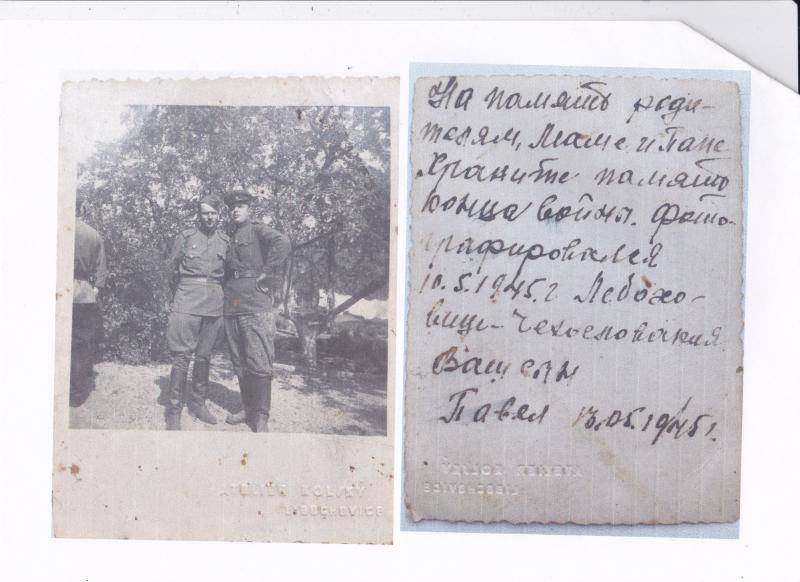 ATELIER KOLSKÝ
LIBOCHOVICE
На память роди-
телям, Маме и Папе
Храните память
конца войны. Фото-
графировался
10.5.1945.г Лебохо-
вице - Чехословакия
Ваш сын
Павел 13.05.1945г.